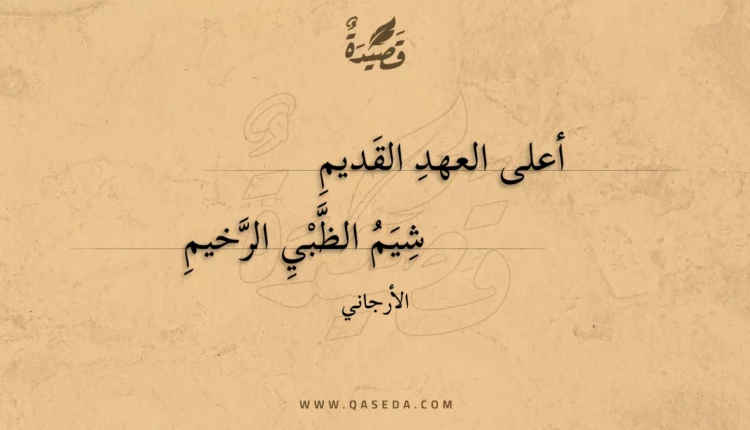 قَصِيدَةٌ
أعلى العهدِ القَديمِ
شِيَمُ الظَّبْيِ الرَّخيمِ
الأرجاني
WWW.QASEDA.COM